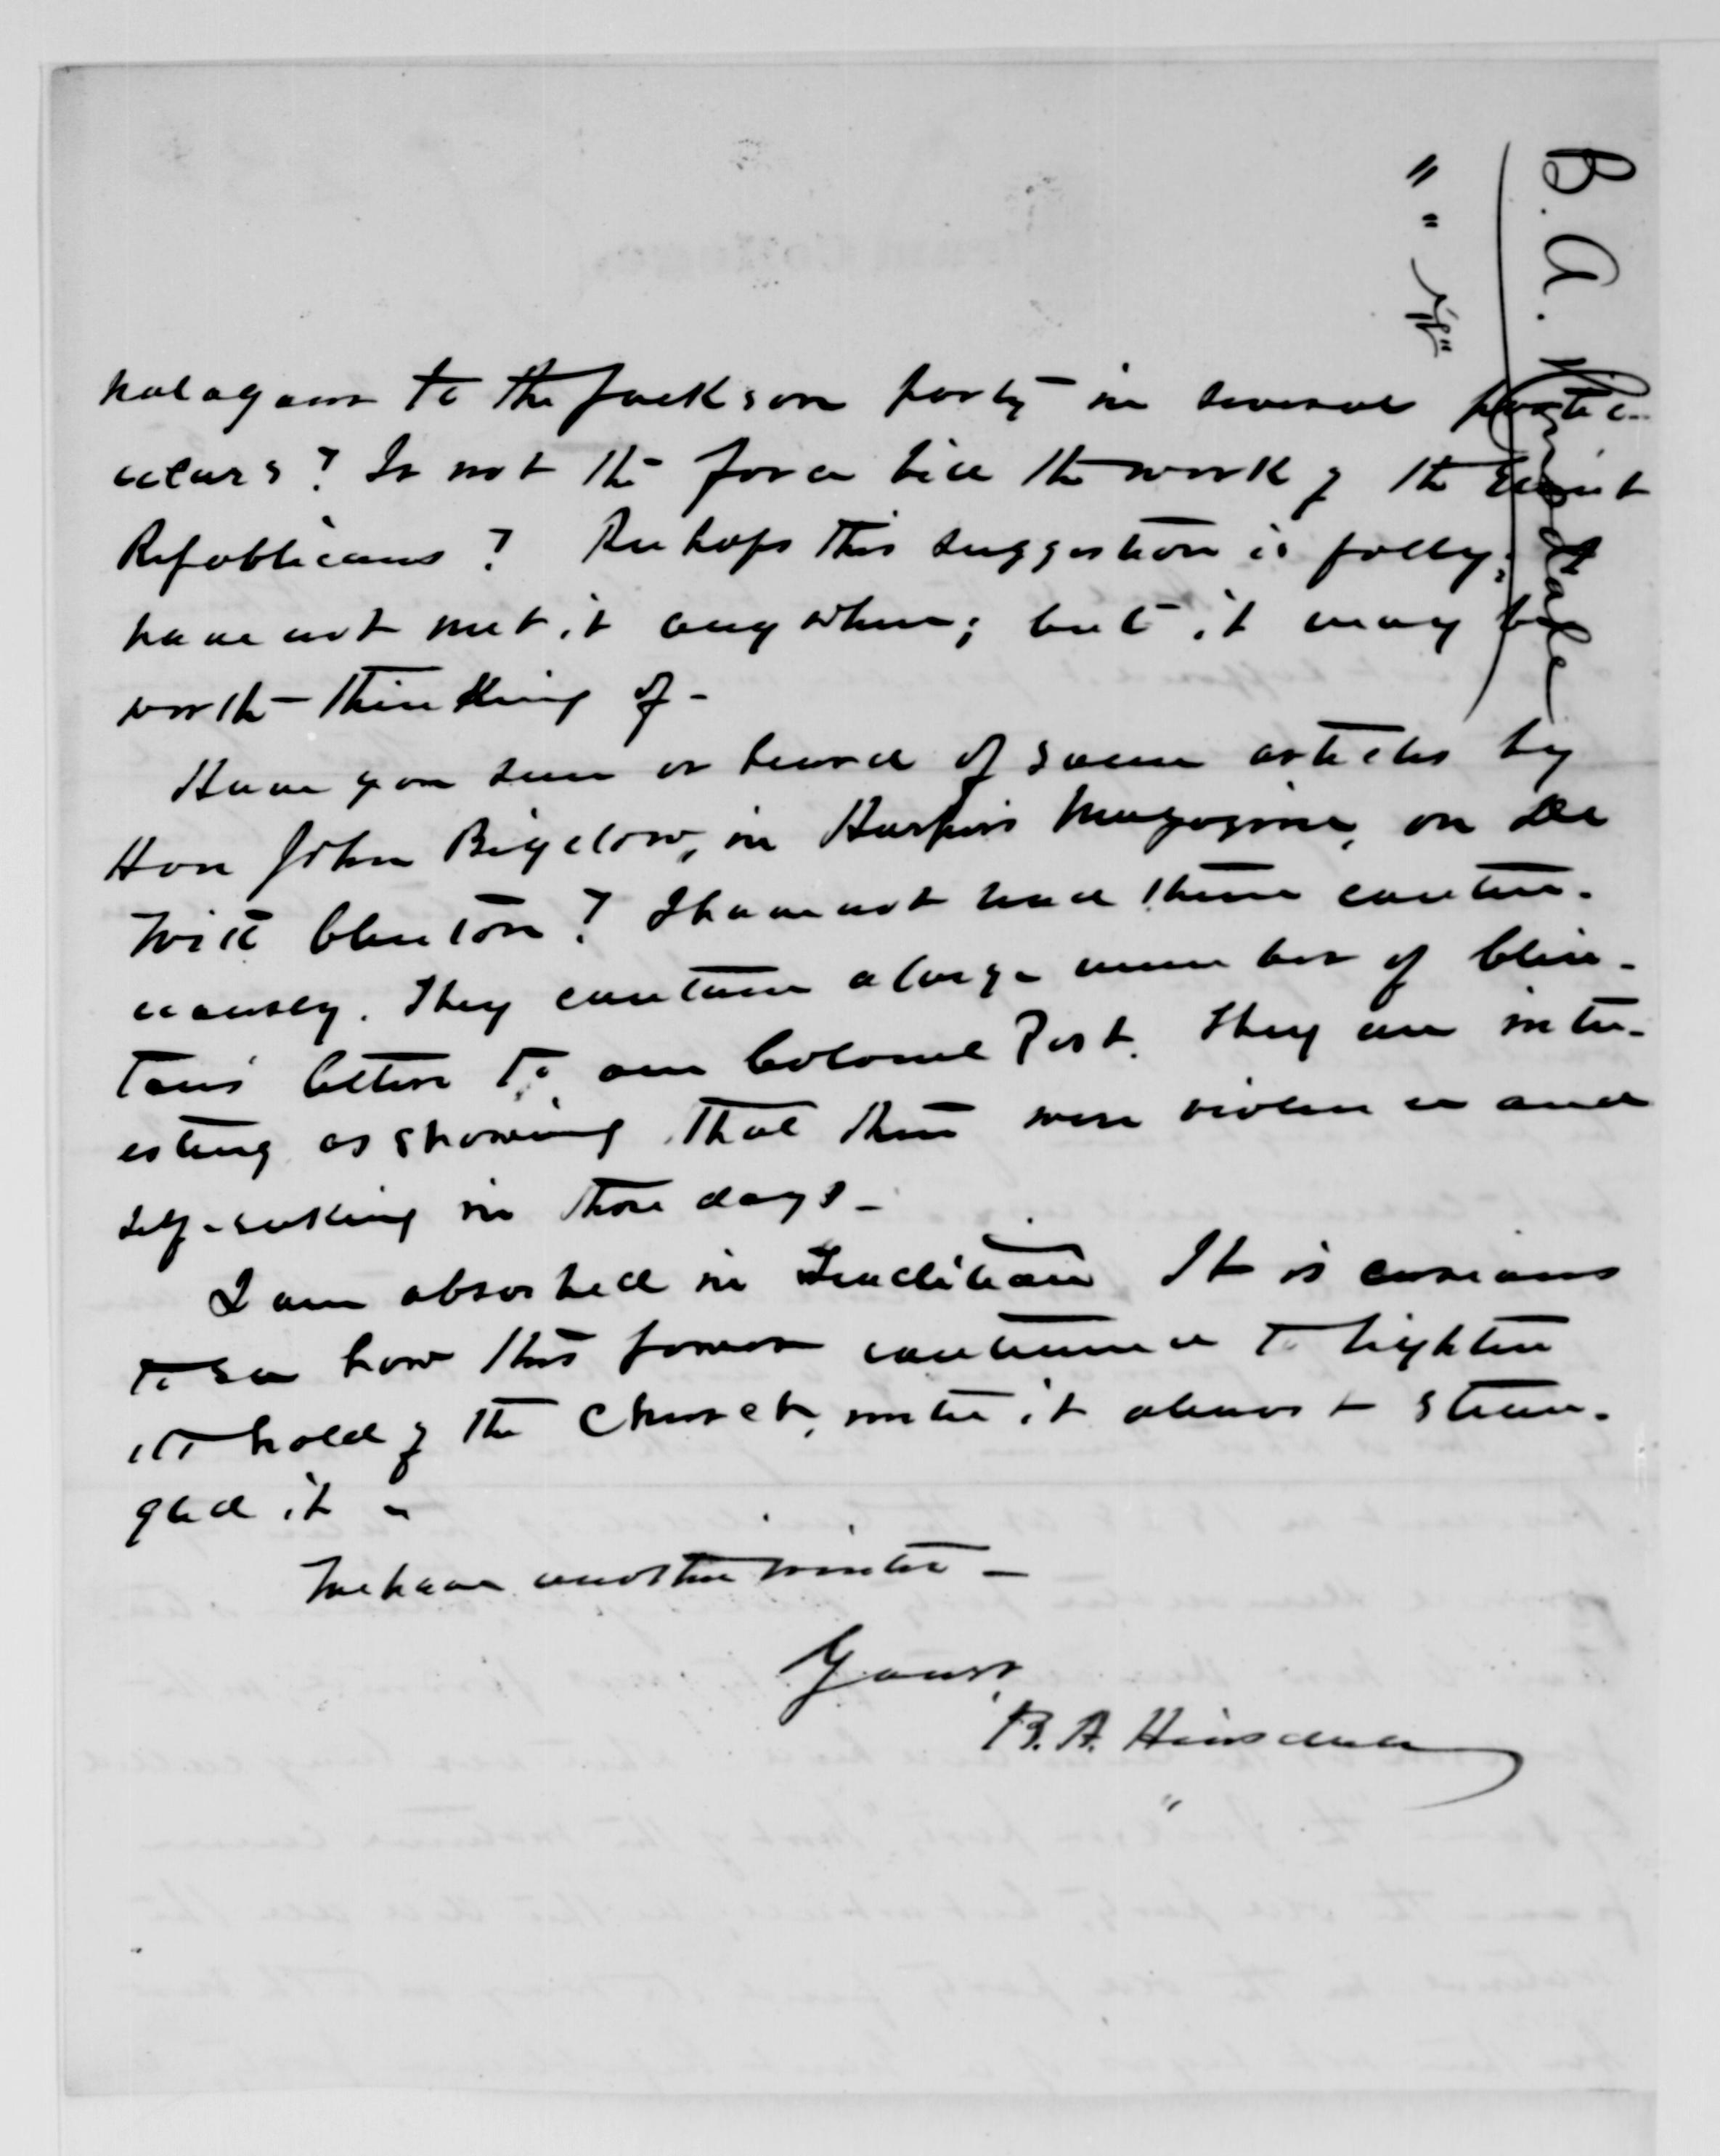 not again to the Jackson party in several partic-
ulars? Is not the force bill the work of the
Republicans? Perhaps this suggestion is folly;
have not met it any where; but it may be
worth thinking of-
Have you seen or heard of some articles by
Hon John Bigelow, in Harper's Magazine, on De
Witt Clinton? I have not read them contin-
uously. They contain a large number of Clin-
ton's letters to one Colonel Post. They are inter-
esting as showing that there were violence and
self-seeking in those days-
I am absorbed in Tradition. It is curious
to see how this power continued to tighten
its hold of the Church, until it almost stran-
gled it-
We have another winter-
Yours,
B. A. Hinsdale
B. A. Hinsdale